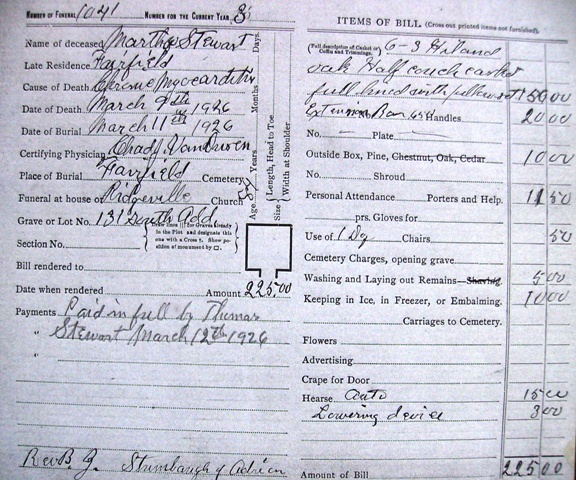 NUMBER OF FUNERAL 1041 NUMBER FOR THE CURRENT YEAR
Name of deceased Martha Stewart
Late Residence Fairfield
Cause of Death Chronic Myocarditis
Date of Death March 9th 1926
Date of Burial March 11th 1926
Certifying Physician Vandiven
Place of Burial Fairfield Cemetery
Funeral at house or Ridgeville Church
Grave or Lot No. 131 South Add
Draw lines for Graves Already
in the Plot and designate this
one with a Cross †. Show po-
sition of monument by □.
Section No.
Bill rendered to
Date when rendered Amount 225.00
Payments Paid in full by Thomas
" Stewart March 12th 1926
"
Rev B. J. Stumbaugh of Adrian
Age Years Months Days.
Size Length, Head to Toe
Width at Shoulder
ITEMS OF BILL (Cross out printed items not furnished).
(Full description of Casket or
Coffin and Trimmings. 6-3
oak Half couch casket
full lined with 150 00
Extension Bar Handles 20 00
No. Plate
Outside Box, Pine, Chestnut, Oak, Cedar 10 00
No. Shroud
Personal Attendance Porters and Help. 11 50
prs. Gloves for
Use of 1 Dg Chairs 50
Cemetery Charges, opening grave
Washing and Laying out Remains—Shaving 5 00
Keeping in Ice, in Freezer, or Embalming. 10 00
Carriages to Cemetery.
Flowers
Advertising.
Crape for Door
Hearse Auto 15 00
Lowering device 3 00
Amount of Bill 225 00